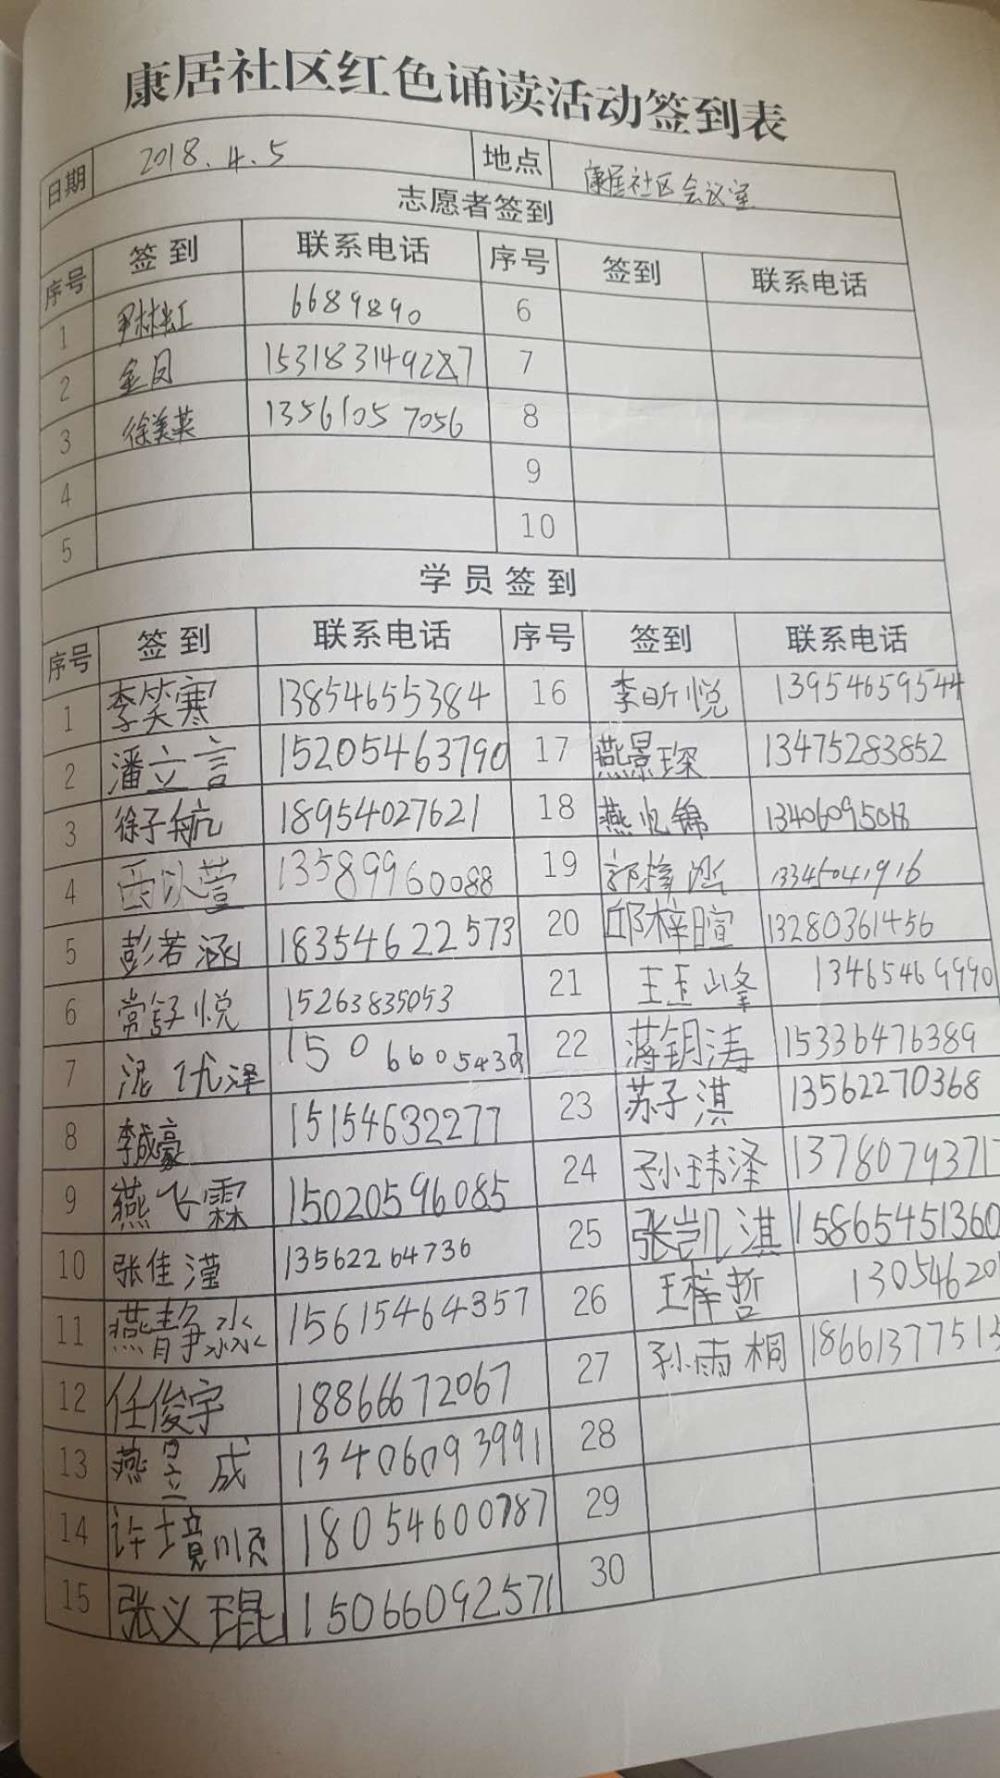 康居社区红色诵读活动签到表
日期 2018.4.5 地点 康居社区会议室
志愿者签到
序号 签到 联系电话 序号 签到 联系电话
1 尹林虹 6689890 6
2 金凤 153183149287 7
3 徐美英 13561057056 8
4 9
5 10
学员签到
序号 签到 联系电话 序号 签到 联系电话
1 李笑寒 13854655384 16 李昕悦 13954659544
2 潘立言 15205463790 17 燕景琛 13475283852
3 徐子航 18954027621 18 燕 锦
4 西以萱 13589960088 19 郭梓涵 13345041916
5 彭若涵 18354622573 20 邱梓暄 13280361456
6 常舒悦 15263835053 21 王玉峰 13465469990
7 泥优泽 22 蒋钥涛 15336476389
8 李成豪 15154632277 23 苏子淇 13562270368
9 燕飞霖 15020596085 24 孙玮泽 1378079371
10 张佳滢 13562264736 25 张凯淇 15865451360
11 燕静淼 15615464357 26 王梓哲 13054620
12 任俊宇 18866672067 27 孙雨桐 1866137751
13 燕昱成 13406093991 28
14 许境顺 18054600787 29
15 张义琨 15066092571 30